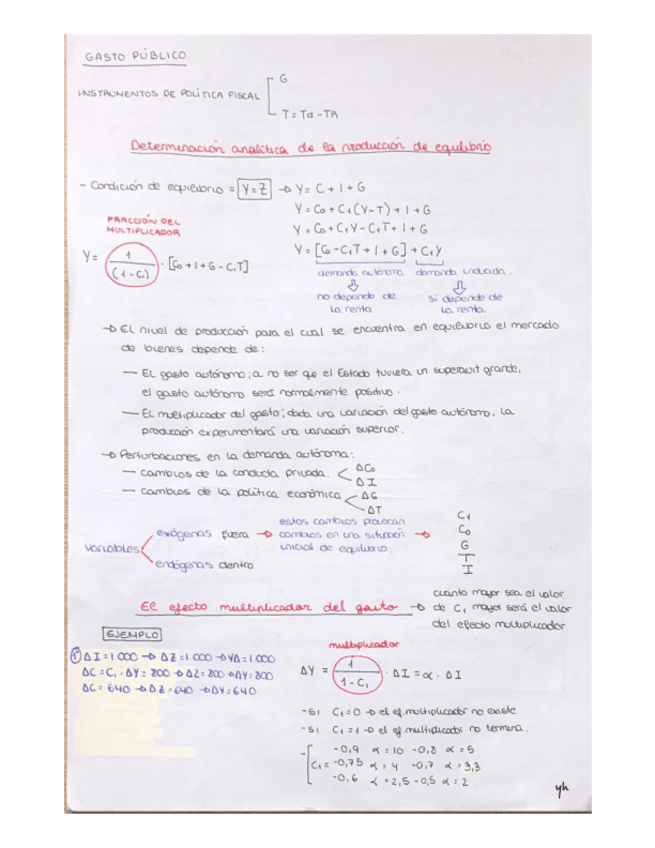 GASTO PÚBLICO
INSTRUMENTOS DE POLÍTICA FISCAL
G
T = Td - TR
Determinación analítica de la producción de equilibrio
- Condición de equilibrio = Y = Z → Y = C + I + G
Y = C0 + C1 (Y-T) + I + G
Y = C0 + C1Y - C1T + I + G
Y = [C0 - C1T + I + G] + C1Y
FRACCIÓN DEL
MULTIPLICADOR
Y = 1 / (1 - C1) · [C0 + I + G - C1T]
demanda autónoma demanda inducida.
no depende de la renta
sí depende de la renta.
→ El nivel de producción para el cual se encuentra en equilibrio el mercado
de bienes depende de:
— El gasto autónomo; a no ser que el Estado tuviera un superavit grande,
el gasto autónomo será normalmente positivo.
— El multiplicador del gasto; dada una variación del gasto autónomo, la
producción experimentará una variación superior.
→ Perturbaciones en la demanda autónoma:
— cambios de la conducta privada. < ΔC0
ΔI
— cambios de la política económica < ΔG
ΔT
variables
exógenas fuera → estos cambios provocan cambios en una situación inicial de equilibrio. →
C1
C0
G
T
I
endógenas dentro
El efecto multiplicador del gasto → cuanto mayor sea el valor
de C1 mayor será el valor
del efecto multiplicador
EJEMPLO
1º ΔI = 1.000 → ΔZ = 1.000 → YΔ = 1.000
ΔC = C1 · ΔY = 800 → ΔZ = 800 → ΔY = 800
ΔC = 640 → ΔZ = 640 → ΔY = 640
multiplicador
ΔY = 1 / 1 - C1 · ΔI = α · ΔI
- Si C1 = 0 → el ef. multiplicador no existe
- Si C1 = 1 → el ef. multiplicador no termina.
- C1 =
- 0,9 α = 10 - 0,8 α = 5
- 0,75 α = 4 - 0,7 α = 3,3
- 0,6 α = 2,5 - 0,5 α = 2
yh